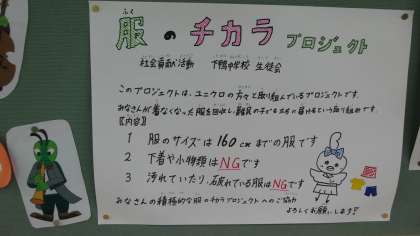 ふく
服のチカラ プロジェクト
社会貢献活動 下鴨中学校 生徒会
このプロジェクトは、ユニクロの方々と取り組んでいるプロジェクトです。
みなさんが着なくなった服を回収し、難民の子どもたちに届けるという取り組みです。
【内容】
1 服のサイズは160cmまでの服です
2 下着や小物類はNGです
3 汚れていたり、破れている服はNGです
みなさんの積極的な服のチカラプロジェクトへのご協力
よろしくお願いします!!